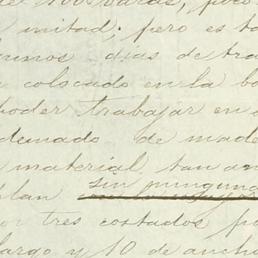 de 100 varas, poco
mitad; pero es ta
unos dias de tra
colocado en la bo
poder trabajar en
demado de made
material, tan
sin ninguna
plan
or tres costados po
largo y 10 de ancho